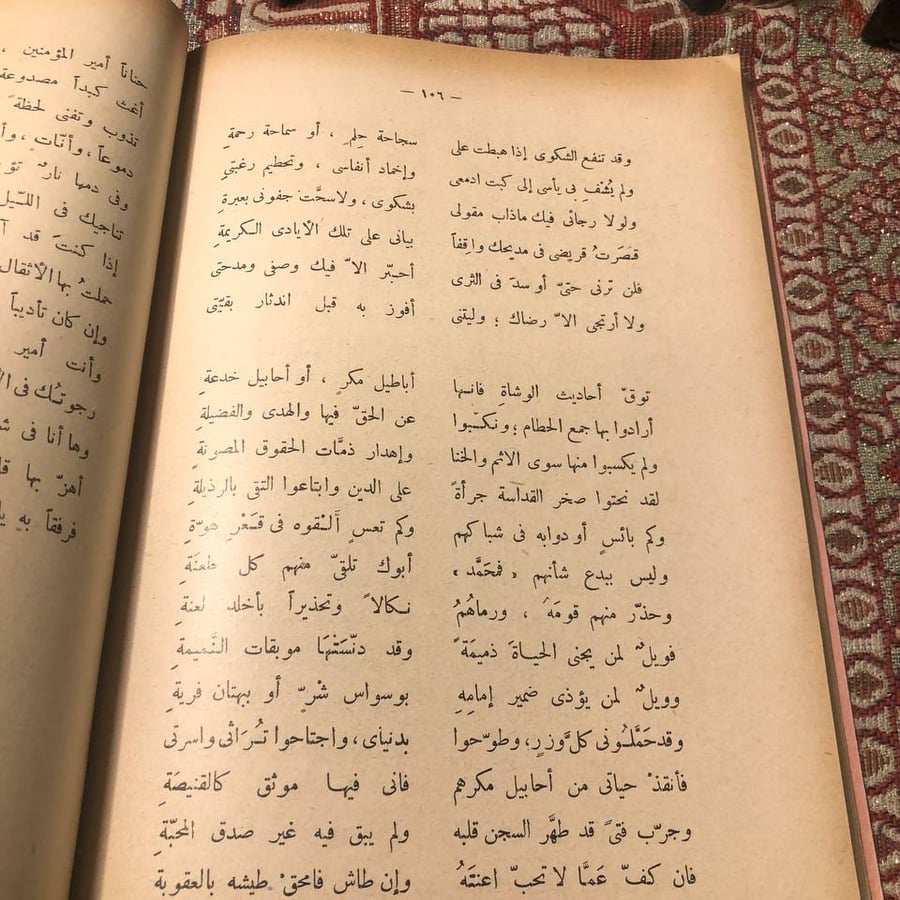 حناناً أمير المؤمنين ،
أغث كبداً مصدوعة
تذوب وتفنى لحظة ً
دموعاً ، وأنّات ٍ ، وأ
وفى دمها نار ٌ تؤ
تناجيك فى اللّيل
إذا كنتَ قد آ
حملتُ بها الأثقال
وإن كان تأديباً
وأنت أمير
رجوتُك فى الأ
وها أنا فى
أهزّ بها
فرفقاً به
— ١٠٦ —
وقد تنفع الشكوى إذا هبطت على سجاحة حِلمٍ ، أو سماحة رحمةِ
ولم يُشْفِ بى يأسى إلى كبت ادمعى وإخماد أنفاسى ، وتحطيم رغبتىِ
ولولا رجائى فيك ماذاب مقولى بشكوى ، ولاسحَّت جفونى بعبرةِ
قصَرَتُ قريضى فى مديحك واقِفاً بيانى على تلك الأيادى الكريمةِ
فلن ترنى حتىّ أوسدَ فى الثرى أحبّر الاّ فيك وصفى ومدحتى
ولا أرتجى الاّ رضاك ؛ وليتنى أفوز به قبل اندثار بقيّتى
توقّ أحاديث الوشاةِ فانها أباطيل مكرٍ ، أو أحابيل خدعةِ
أرادوا بها جمع الحطام ؛ ونكّبوا عن الحقّ فيها والهدى والفضيلةِ
ولم يكسبوا منها سوى الاثم والخنا وإهدار ذمَّات الحقوق المصونةِ
لقد نحتوا صخر القداسة جرأةً على الدين وابتاعوا التقى بالرذيلةِ
وكم بائسٍ أودوابه فى شباكهم وكم تعسٍ ألْقوه فى قَعْرِ هوّةِ
وليس ببدع شأنهم « فمحَمَّد » أبوك تلقىّ منهم كل طعنَةِ
وحذّر منهم قومَهُ ، ورماهُمُ نكالاً وتحذيراً بأخلد لعنةِ
فويلٌ لمن يجنى الحياةَ ذميمَةً وقد دنّسَتْهَا موبقات النَّميمةِ
وويلٌ لمن يؤذى ضمير إمامِهِ بوسواس شرٍّ أو ببهتان فريةِ
وقدحَمَّلُونى كلَّ وزرٍ ، وطوّحوا بدنياى ، واجتاحوا تُرَاثى واسرتى
فأنقذْ حياتى من أحابيل مكرهم فانى فيها موثق كالقنيصَةِ
وجرّب فتىً قد طهَّر السجن قلبه ولم يبق فيه غير صدق المحبّةِ
فان كفّ عَمَّا لا تحبّ اعنتَهُ وإن طاش فامحقْ طيشه بالعقوبة